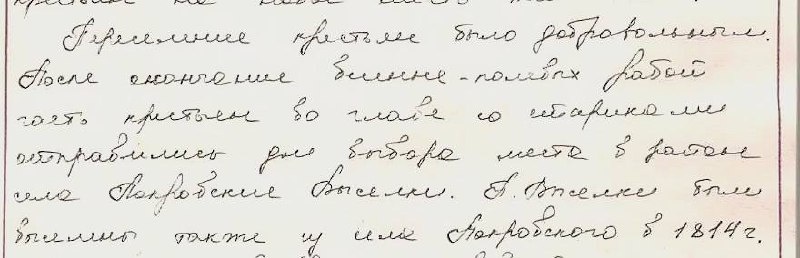 Переселение крестьян было добровольным.
После окончание весенне-полевых работ
часть крестьян во главе со стариками
отправились для выбора места в районе
села Покровские Выселки. П. Выселки были
выселены также из села Покровского в 1814 г.